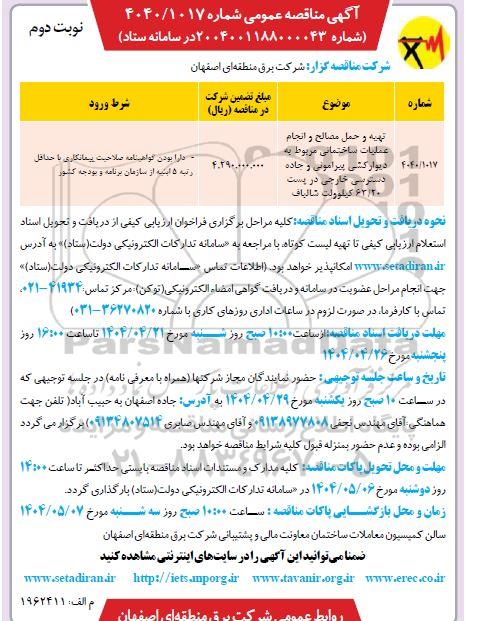 آگهی مناقصه عمومی شماره ۴۰۴۰/۱۰۱۷
(شماره ۲۰۰۴۰۰۱۱۸۸۰۰۰۰۴۳ در سامانه ستاد)
نوبت دوم
شرکت مناقصه گزار: شرکت برق منطقه‌ای اصفهان
شماره
موضوع
مبلغ تضمین شرکت در مناقصه (ریال)
شرط ورود
۴۰۴۰/۱۰۱۷
تهیه و حمل مصالح و انجام
عملیات ساختمانی مربوط به
دیوارکشی پیرامونی و جاده
دسترسی خارجی در پست
۶۳/۲۰ کیلوولت شالباف
۴,۲۹۰,۰۰۰,۰۰۰
- دارا بودن گواهینامه صلاحیت پیمانکاری با حداقل
رتبه ۵ ابنیه از سازمان برنامه و بودجه کشور
نحوه دریافت و تحویل اسناد مناقصه: کلیه مراحل برگزاری فراخوان ارزیابی کیفی از دریافت و تحویل اسناد
استعلام ارزیابی کیفی تا تهیه لیست کوتاه، با مراجعه به «سامانه تدارکات الکترونیکی دولت(ستاد)» به آدرس
www.setadiran.ir امکانپذیر خواهد بود. (اطلاعات تماس «سـامانه تدارکات الکترونیکی دولت(ستاد)»
جهت انجام مراحل عضویت در سامانه و دریافت گواهی امضاء الکترونیکی(توکن): مرکز تماس: ۴۱۹۳۴-۰۲۱،
تماس با کارفرما، در صورت لزوم در ساعات اداری روزهای کاری با شماره ۳۶۲۷۰۸۲۰-۰۳۱)
مهلت دریافت اسناد مناقصه: از ساعت ۱۰:۰۰ صبح روز شـــنبه مورخ ۱۴۰۴/۰۴/۲۱ تا ساعت ۱۶:۰۰ روز
پنجشنبه مورخ ۱۴۰۴/۰۴/۲۶
تاریخ و ساعت جلسه توجیهی: حضور نمایندگان مجاز شرکتها (همراه با معرفی نامه) در جلسه توجیهی که
در ســاعت ۱۰ صبح روز یکشنبه مورخ ۱۴۰۴/۰۴/۲۹ به آدرس: جاده اصفهان به حبیب آباد( تلفن جهت
هماهنگی: آقای مهندس نجفی ۰۹۱۳۸۹۷۷۸۰۸ و آقای مهندس صابری ۰۹۱۳۴۸۰۷۵۱۴) برگزار می گردد
الزامی بوده و عدم حضور بمنزله قبول کلیه شرایط مناقصه خواهد بود.
مهلت و محل تحویل پاکات مناقصه: کلیه مدارک و مستندات اسناد مناقصه بایستی حداکثر تا ساعت ۱۴:۰۰
روز دوشنبه مورخ ۱۴۰۴/۰۵/۰۶ در «سامانه تدارکات الکترونیکی دولت(ستاد) بارگذاری گردد.
زمان و محل بازگشــایی پاکات مناقصه : ســاعت ۱۰:۰۰ صبح روز سه شــنبه مورخ ۱۴۰۴/۰۵/۰۷
سالن کمیسیون معاملات ساختمان معاونت مالی و پشتیبانی شرکت برق منطقه‌ای اصفهان
ضمنا می‌توانید این آگهی را در سایت‌های اینترنتی مشاهده کنید
www.setadiran.ir http://iets.mporg.ir www.tavanir.org.ir www.erec.co.ir
م الف: ۱۹۶۲۴۱۱
روابط عمومی شرکت برق منطقه‌ای اصفهان